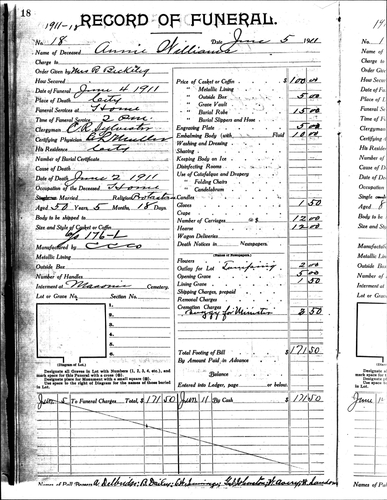 18
1911-12
RECORD OF FUNERAL.
No. 18 Date June 5 1911
Name of Deceased Annie Williams
Charge to
Order Given by Mrs B
Date of Funeral June 4 1911
Place of Death City
Funeral Services at Home
Time of Funeral Service 2 P.m.
Clergyman C R Sylvester
Certifying Physician
His Residence City
Number of Burial Certificate
Cause of Death
Date of Death June 2 1911
Occupation of the Deceased Home
Single or Married Religion Protestant
Aged 50 Years 5 Months 18 Days
Body to be shipped to
Size and Style of Casket or Coffin
6/ 176-L
Manufactured by C C Co
Metallic Lining
Outside Box
Number of Handles
Interment at Masonic Cemetery.
Lot or Grave No. Section No.
1.
2.
3.
4.
5.
6.
(Diagram of Lot.)
Designate all Graves in Lot with Numbers (1, 2, 3, 4, etc.), and
mark space for this Funeral with a cross (
Designate place for Monument with a small square (
Use space to the right of Diagram for the names of those buried
in Lot.
Price of Casket or Coffin $ 100.00
" Metallic Lining
" Outside Box 5 00
" Grave Vault
" Burial Robe 15 00
" Burial Slippers and Hose
Engraving Plate 5 00
Embalming Body (with Fluid 10 00
Washing and Dressing
Shaving
Keeping Body on Ice
Disinfecting Rooms
Use of Catafalque and Drapery
" Folding Chairs
" Candelabrum
Candles
Gloves 1 50
Crape
Number of Carriages @$ 12 00
Hearse 12 00
Wagon Deliveries
Death Notices in Newspapers.
(Names of Newspapers)
Flowers
Outlay for Lot 2 00
Opening Grave 5 00
Lining Grave 1 50
Shipping Charges, prepaid
Removal Charges
Cremation Charges
Buggy for Minister 2 50
Total Footing of Bill $ 171 50
By Amount Paid in Advance
Balance
Entered into Ledger, page or below.
Jun 5 To Funeral Charges Total, $ 171 50 Jun 11 By Cash $ 171 50
Names of Pall Bearers